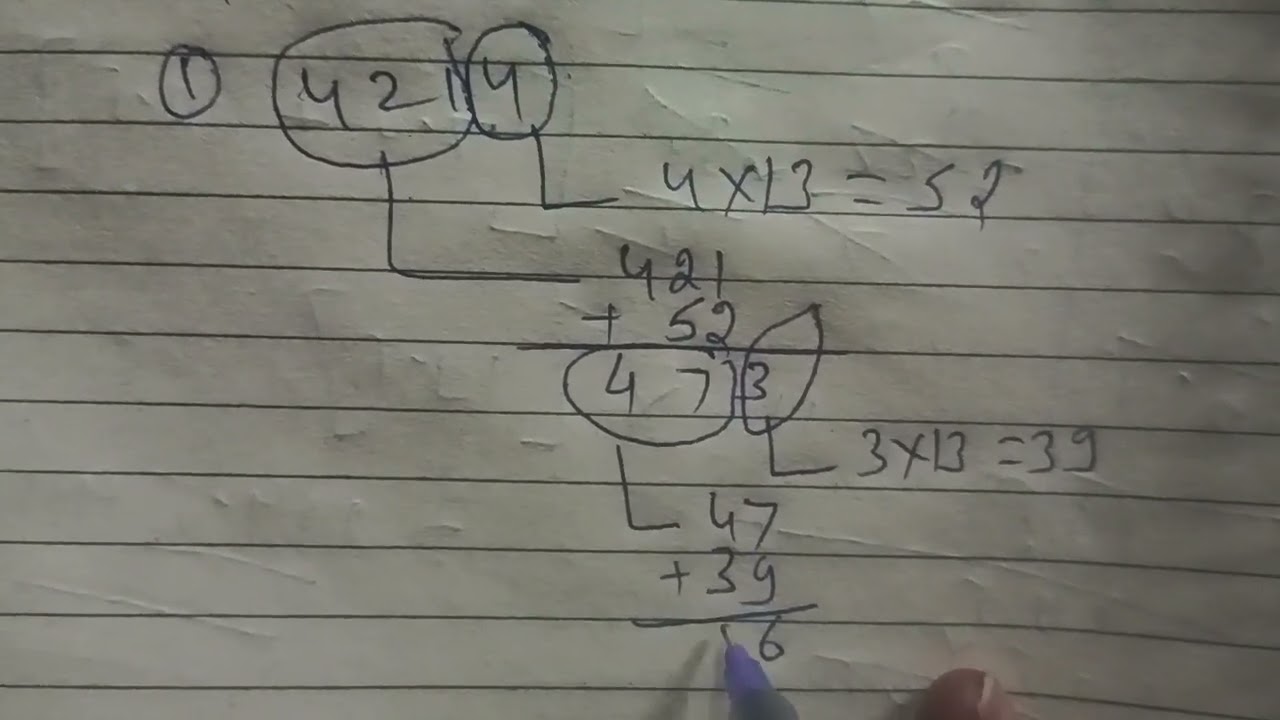 ① 421 4
4 × 13 = 52
421
+ 52
47 3
3 × 13 = 39
47
+ 39
6